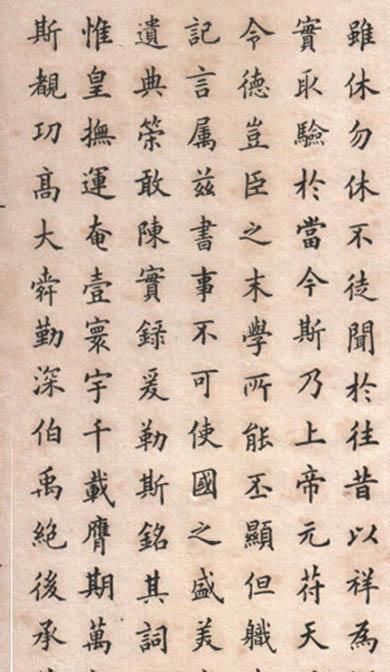 雖休勿休不徒聞於往昔以祥為
實取驗於當今斯乃上帝元苻天
令德豈臣之末學所能丕顯但職
記言属茲書事不可使國之盛美
遺典策敢陳實録爰勒斯銘其詞
惟皇撫運奄壹寰宇千載膺期萬
斯覩功髙大舜勤深伯禹絶後承